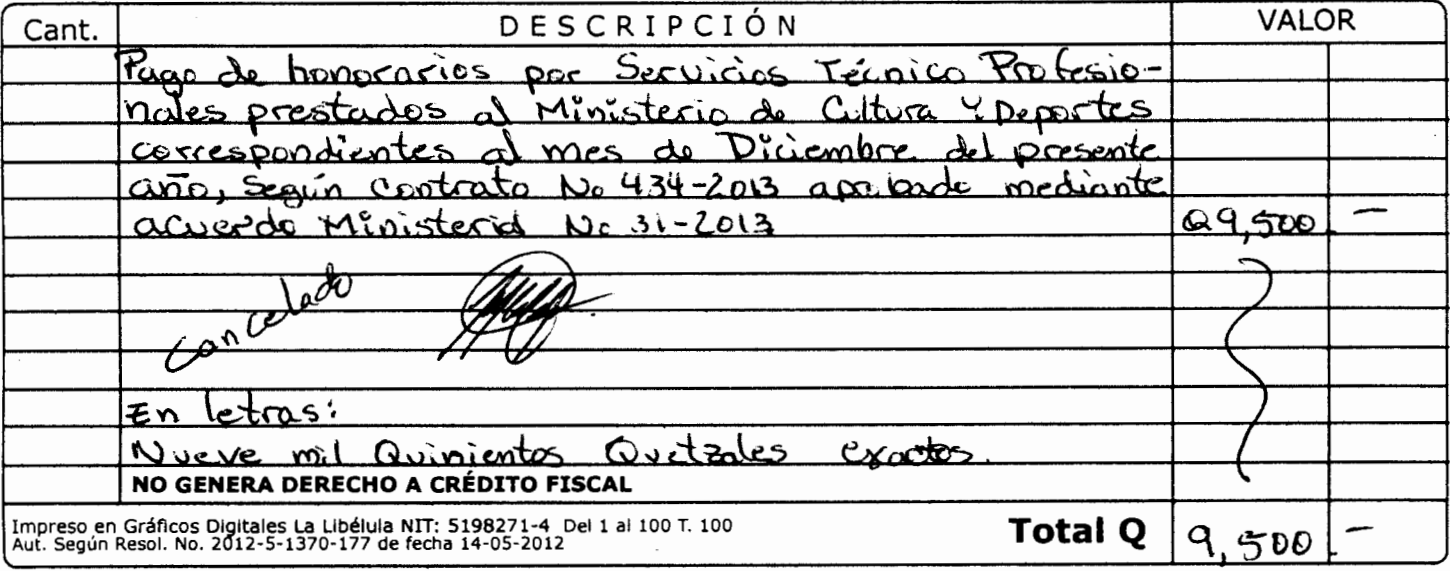 Cant. DESCRIPCIÓN VALOR
Pago de honorarios por Servicios Técnico Profesio-
nales prestados al Ministerio de Cultura y Deportes
correspondientes al mes de Diciembre del presente
año, Según Contrato No 434-2013 aprobado mediante
acuerdo Ministerial No 31-2013 Q9,500.-
Cancelado
En letras:
Nueve mil Quinientos Quetzales exactos.
NO GENERA DERECHO A CRÉDITO FISCAL
Impreso en Gráficos Digitales La Libélula NIT: 5198271-4 Del 1 al 100 T. 100
Aut. Según Resol. No. 2012-5-1370-177 de fecha 14-05-2012
Total Q 9,500.-